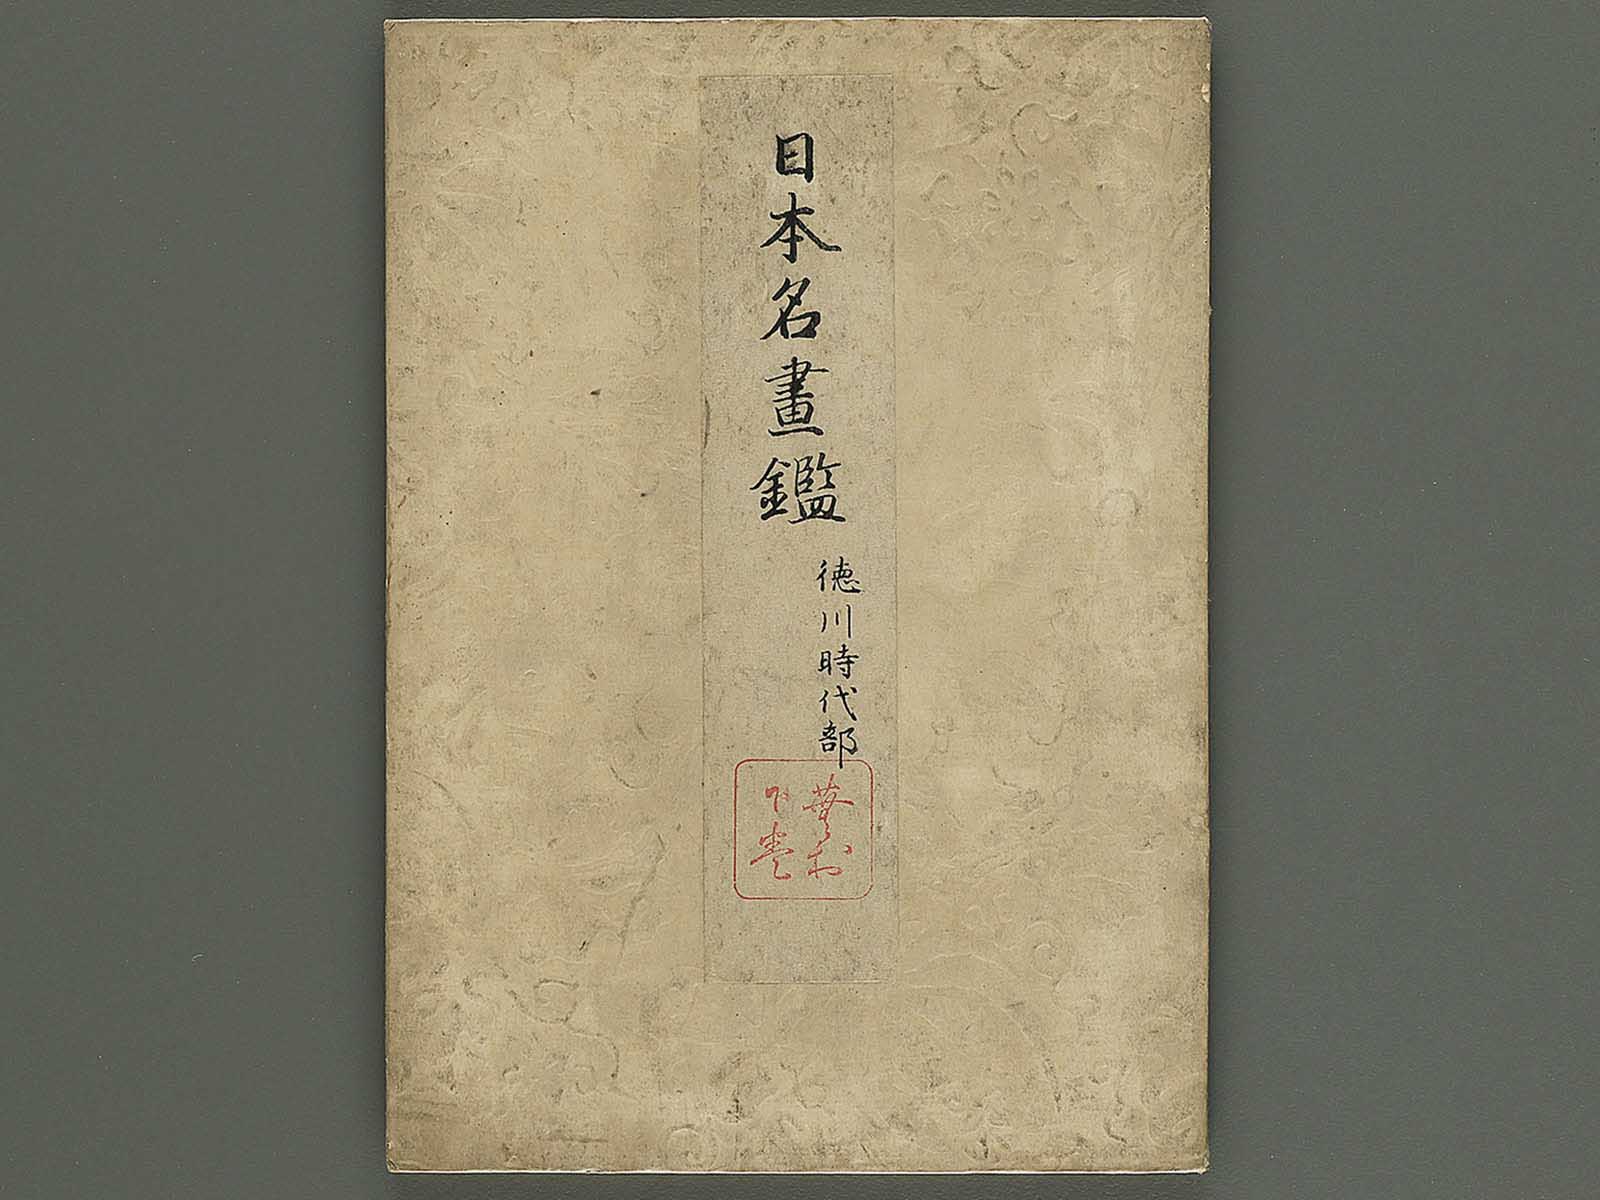 日本名畫鑑
徳川時代部
下巻